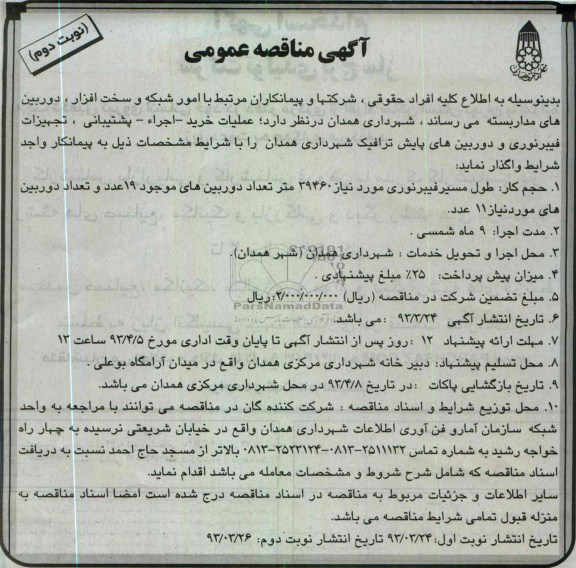 (نوبت دوم)
آگهی مناقصه عمومی
بدینوسیله به اطلاع کلیه افراد حقوقی ، شرکتها و پیمانکاران مرتبط با امور شبکه و سخت افزار ، دوربین
های مداربسته می رساند ، شهرداری همدان درنظر دارد؛ عملیات خرید –اجراء – پشتیبانی ، تجهیزات
فیبرنوری و دوربین های پایش ترافیک شهرداری همدان را با شرایط مشخصات ذیل به پیمانکار واجد
شرایط واگذار نماید:
۱. حجم کار: طول مسیرفیبرنوری مورد نیاز ۳۹۴۶۰ متر تعداد دوربین های موجود ۱۹عدد و تعداد دوربین
های موردنیاز۱۱ عدد.
۲. مدت اجرا: ۹ ماه شمسی .
۳. محل اجرا و تحویل خدمات : شهرداری همدان (شهر همدان).
۴. میزان پیش پرداخت: ۲۵٪ مبلغ پیشنهادی .
ParsNamadData
۵. مبلغ تضمین شرکت در مناقصه (ریال) ۲/۰۰۰/۰۰۰/۰۰۰: ریال
۶. تاریخ انتشار آگهی ۹۳/۳/۲۴ :می باشد.
۷. مهلت ارائه پیشنهاد ۱۲ :روز پس از انتشار آگهی تا پایان وقت اداری مورخ ۹۳/۴/۵ ساعت ۱۳
۸. محل تسلیم پیشنهاد: دبیر خانه شهرداری مرکزی همدان واقع در میدان آرامگاه بوعلی .
۹. تاریخ بازگشایی پاکات :در تاریخ ۹۳/۴/۸ در محل شهرداری مرکزی همدان می باشد.
۱۰. محل توزیع شرایط و اسناد مناقصه : شرکت کننده گان در مناقصه می توانند با مراجعه به واحد
شبکه سازمان آمارو فن آوری اطلاعات شهرداری همدان واقع در خیابان شریعتی نرسیده به چهار راه
خواجه رشید به شماره تماس ۲۵۱۱۱۳۲-۰۸۱۳-۲۵۲۳۱۲۴-۰۸۱۳ بالاتر از مسجد حاج احمد نسبت به دریافت
اسناد مناقصه که شامل شرح شروط و مشخصات معامله می باشد اقدام نماید.
سایر اطلاعات و جزئیات مربوط به مناقصه در اسناد مناقصه درج شده است امضا اسناد مناقصه به
منزله قبول تمامی شرایط مناقصه می باشد.
تاریخ انتشار نوبت اول: ۹۳/۰۳/۲۴ تاریخ انتشار نوبت دوم: ۹۳/۰۳/۲۶